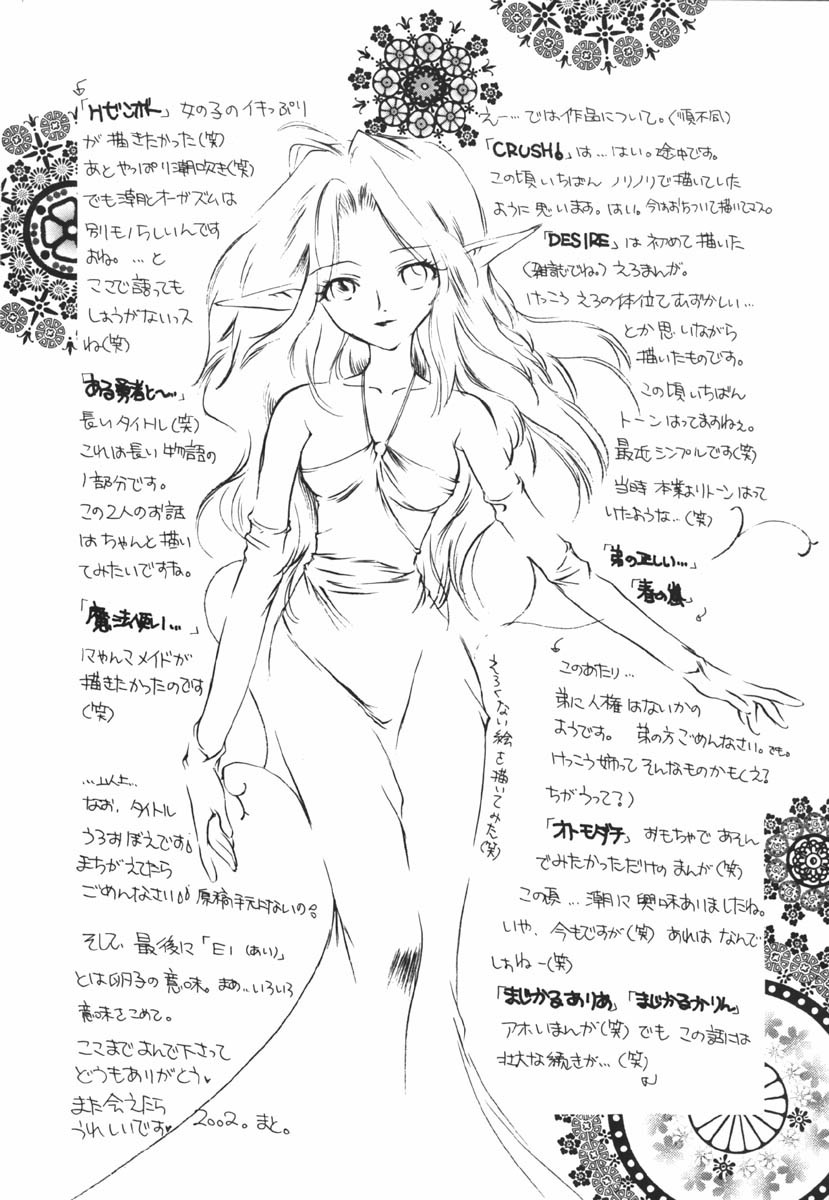 えー…では作品について。(順不同)
「CRUSH!」は…はい。途中です。
この頃いちばんノリノリで描いていた
ように思います。はい。今はおちついて描いてマス。
「DESIRE」は初めて描いた
(雑誌でね。)えろまんが。
けっこうえろの体位てむずかしい…
とか思いながら
描いたものです。
この頃いちばん
トーンはってますねぇ。
最近シンプルです(笑)
当時本業よりトーンはって
いたような…(笑)
「弟の正しい…」
「春の嵐」
このあたり…
弟に人権はないかの
ようです。弟の方ごめんなさい。でも。
けっこう姉ってそんなものかもくえ?
ちがうって?)
「オトモダチ」おもちゃであそん
でみたかっただけのまんが(笑)
この頃…潮に興味ありましたね。
いや、今もですが(笑)あれはなんで
しょねー(笑)
「まじかるありあ」「まじかるかりん」
アホいまんが(笑)でもこの話には
壮大な続きが…(笑)
「Hゼンボー」女の子のイキっぷり
が描きたかった(笑)
あとやっぱり潮吹き(笑)
でも潮とオーガズムは
別モノらしいんです
よね。…と
ここで語っても
しょうがないっス
ね(笑)
「ある勇者と〜…」
長いタイトル(笑)
これは長い物語の
1部分です。
この2人のお話
はちゃんと描い
てみたいですね。
「魔法使い…」
にゃんこメイドが
描きたかったのです
(笑)
…以上…
なお、タイトル
うろおぼえです。
まちがえてたら
ごめんなさい。原稿手元にないの。
そして、最後に「EI(あい)」
とは卵子の意味。まぁ…いろいろ
意味をこめて。
ここまでよんで下さって
どうもありがとう♥
また会えたら
うれしいです♥ 2002。まと。
えろくない絵を描いてみた(笑)